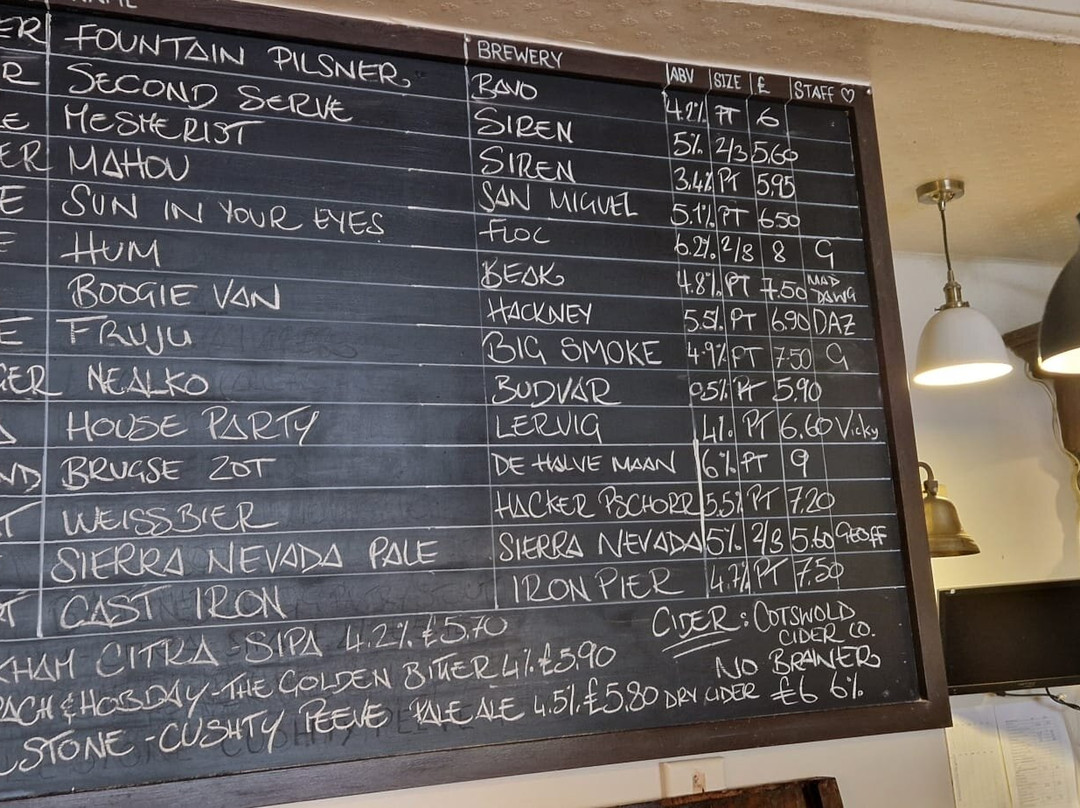 NAME BREWERY ABV SIZE £ STAFF ♡
ER FOUNTAIN PILSNER BAVO 4.2% PT 6
R SECOND SERVE SIREN 5% 2/3 5.60
E MESMERIST SIREN 3.4% PT 5.95
ER MAHOU SAN MIGUEL 5.1% PT 6.50
E SUN IN YOUR EYES FLOC 6.2% 2/3 8 G
E HUM BEAK 4.8% PT 7.50 MAD DAWG
BOOGIE VAN HACKNEY 5.5% PT 6.90 DAZ
E FRUJU BIG SMOKE 4.9% PT 7.50 G
GER NEALKO BUDVAR 0.5% PT 5.90
A HOUSE PARTY LERVIG 4% PT 6.60 Vicky
ND BRUGSE ZOT DE HALVE MAAN 6% PT 9
T WEISSBIER HACKER PSCHORR 5.5% PT 7.20
E SIERRA NEVADA PALE SIERRA NEVADA 5% 2/3 5.60 GEOFF
T CAST IRON IRON PIER 4.7% PT 7.50
KHAM CITRA - SIPA 4.2% £5.70
ACH & HOBDAY - THE GOLDEN BITTER 4% £5.90
STONE - CUSHTY PEEVE PALE ALE 4.5% £5.80
CIDER: COTSWOLD
CIDER CO.
NO BRAINER
DRY CIDER £6 6%